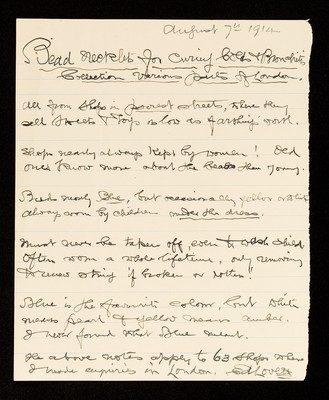 August 7th 1914
Bead necklets for curing Colds & Bronchitis
Collection various parts of London.
All from shops in poorest streets, where they
sell sweets & toys as low as farthings worth.
Shops nearly always kept by women! Old
ones know more about the beads than young.
Beads mostly Blue, but occasionally yellow or white
always worn by children under the dress.
Must never be taken off even to wash child
Often worn a whole lifetime, only removing
to renew string if broken or rotten!
Blue is the favourite colour, but white
means pearl & yellow means amber.
I never found what Blue meant.
The above notes apply to 63 shops where
I made enquiries in London. E Lovett